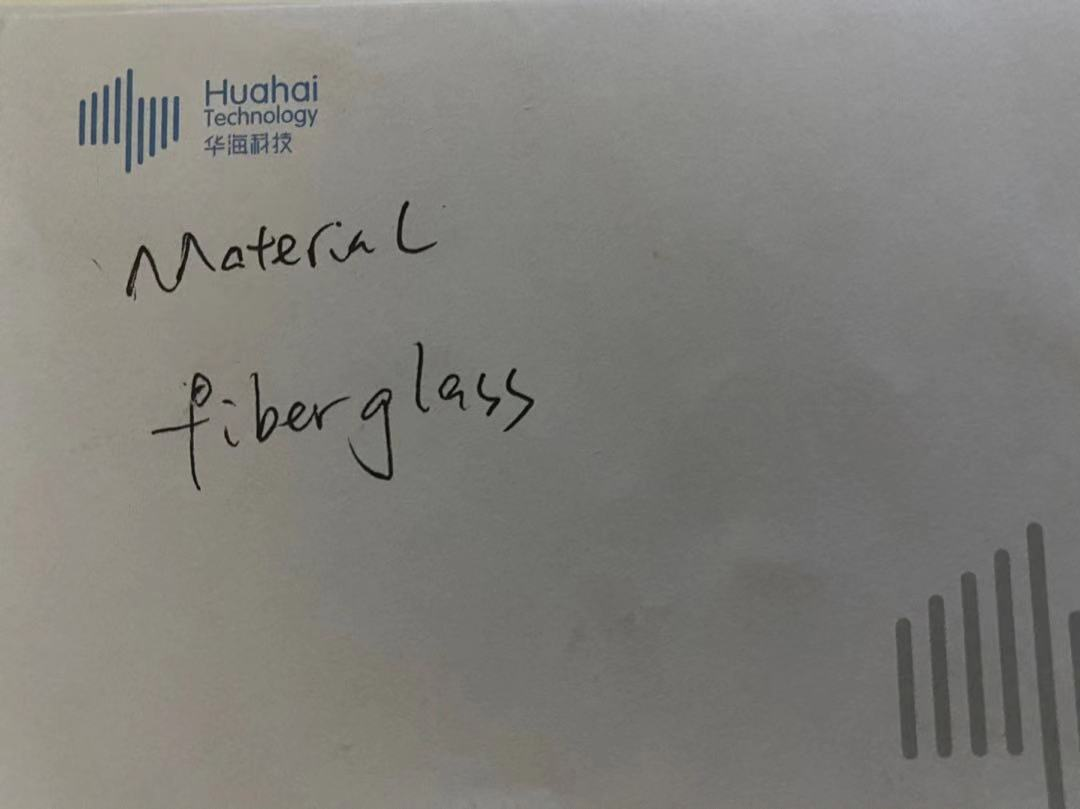 Huahai
Technology
华海科技
Material
fiberglass